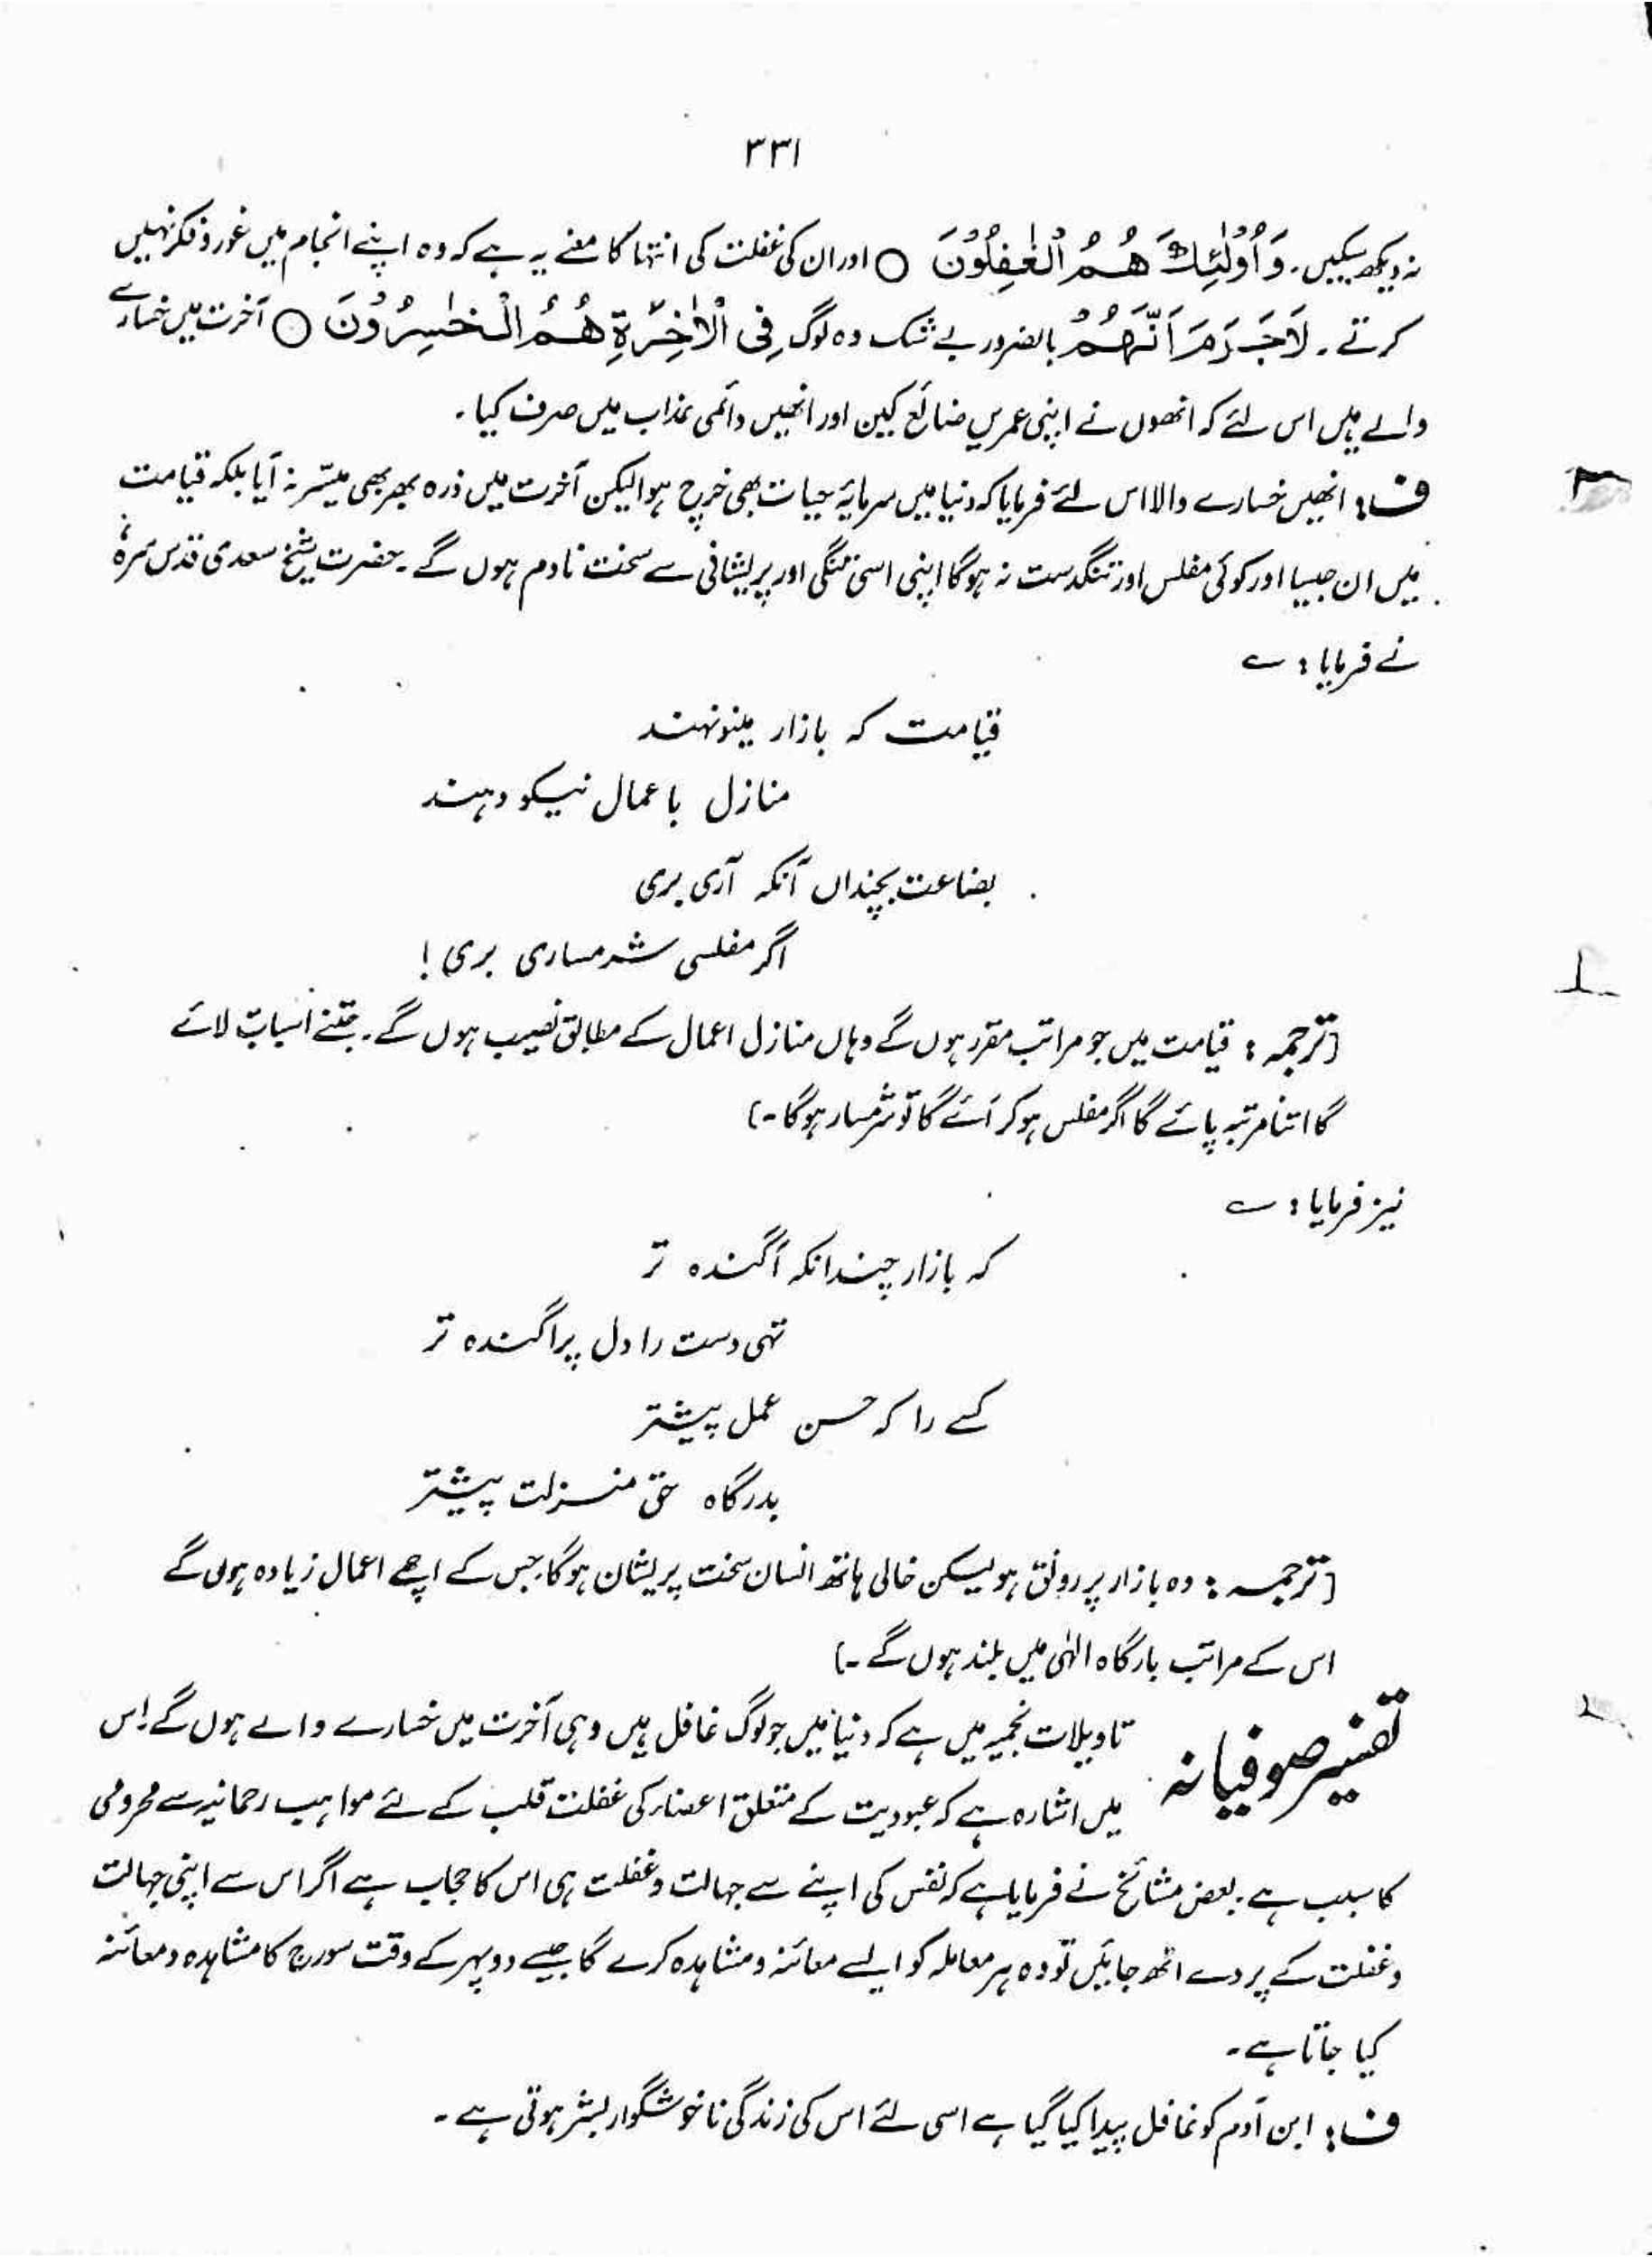 ۳۳۱
نہ دیکھ سکیں۔ وَاُولٰٓئِكَ هُمُ الْغٰفِلُوْنَ ○ اور ان کی غفلت کی انتہا کا معنے یہ ہے کہ وہ اپنے انجام میں غور و فکر نہیں
کرتے۔ لَاجَرَمَ اَنَّهُمْ بالضرور بے شک وہ لوگ فِی الْاٰخِرَةِ هُمُ الْخٰسِرُوْنَ ○ آخرت میں خسارے
والے ہیں اس لئے کہ انھوں نے اپنی عمریں ضائع کیں اور انھیں دائمی عذاب میں صرف کیا۔
ف: انھیں خسارے والا اس لئے فرمایا کہ دنیا میں سرمایۂ حیات بھی خرچ ہوا لیکن آخرت میں ذرہ بھر بھی میسّر نہ آیا بلکہ قیامت
میں ان جیسا اور کوئی مفلس اور تنگدست نہ ہوگا اپنی اسی تنگی اور پریشانی سے سخت نادم ہوں گے۔ حضرت شیخ سعدی قدس سرہٗ
نے فرمایا: ؎
قیامت کہ بازار مینو نہند
منازل باعمال نیکو دہند
بضاعت بچنداں آنکہ آری بری
اگر مفلسی شرمساری بری!
(ترجمہ: قیامت میں جو مراتب مقرر ہوں گے وہاں منازل اعمال کے مطابق نصیب ہوں گے۔ جتنے اسباب لائے
گا اتنا مرتبہ پائے گا اگر مفلس ہو کر آئے گا تو شرمسار ہوگا۔)
نیز فرمایا: ؎
کہ بازار چندانکہ آگندہ تر
تہی دست را دل پراگندہ تر
کسے را کہ حسن عمل پیشتر
بدرگاہ حق منزلت پیشتر
(ترجمہ: وہ بازار پر رونق ہو لیکن خالی ہاتھ انسان سخت پریشان ہوگا جس کے اچھے اعمال زیادہ ہوں گے
اس کے مراتب بارگاہ الٰہی میں بلند ہوں گے۔)
تفسیر صوفیانہ تاویلات نجمیہ میں ہے کہ دنیا میں جو لوگ غافل ہیں وہی آخرت میں خسارے والے ہوں گے۔ اس
میں اشارہ ہے کہ عبودیت کے متعلق اعضاء کی غفلت قلب کے لئے مواہب رحمانیہ سے محرومی
کا سبب ہے۔ بعض مشائخ نے فرمایا ہے کہ نفس کی اپنے سے جہالت و غفلت ہی اس کا حجاب ہے اگر اس سے اپنی جہالت
و غفلت کے پردے اٹھ جائیں تو وہ ہر معاملہ کو ایسے معائنہ و مشاہدہ کرے گا جیسے دوپہر کے وقت سورج کا مشاہدہ و معائنہ
کیا جاتا ہے۔
ف: ابن آدم کو غافل پیدا کیا گیا ہے اسی لئے اس کی زندگی ناخوشگوار بسر ہوتی ہے۔